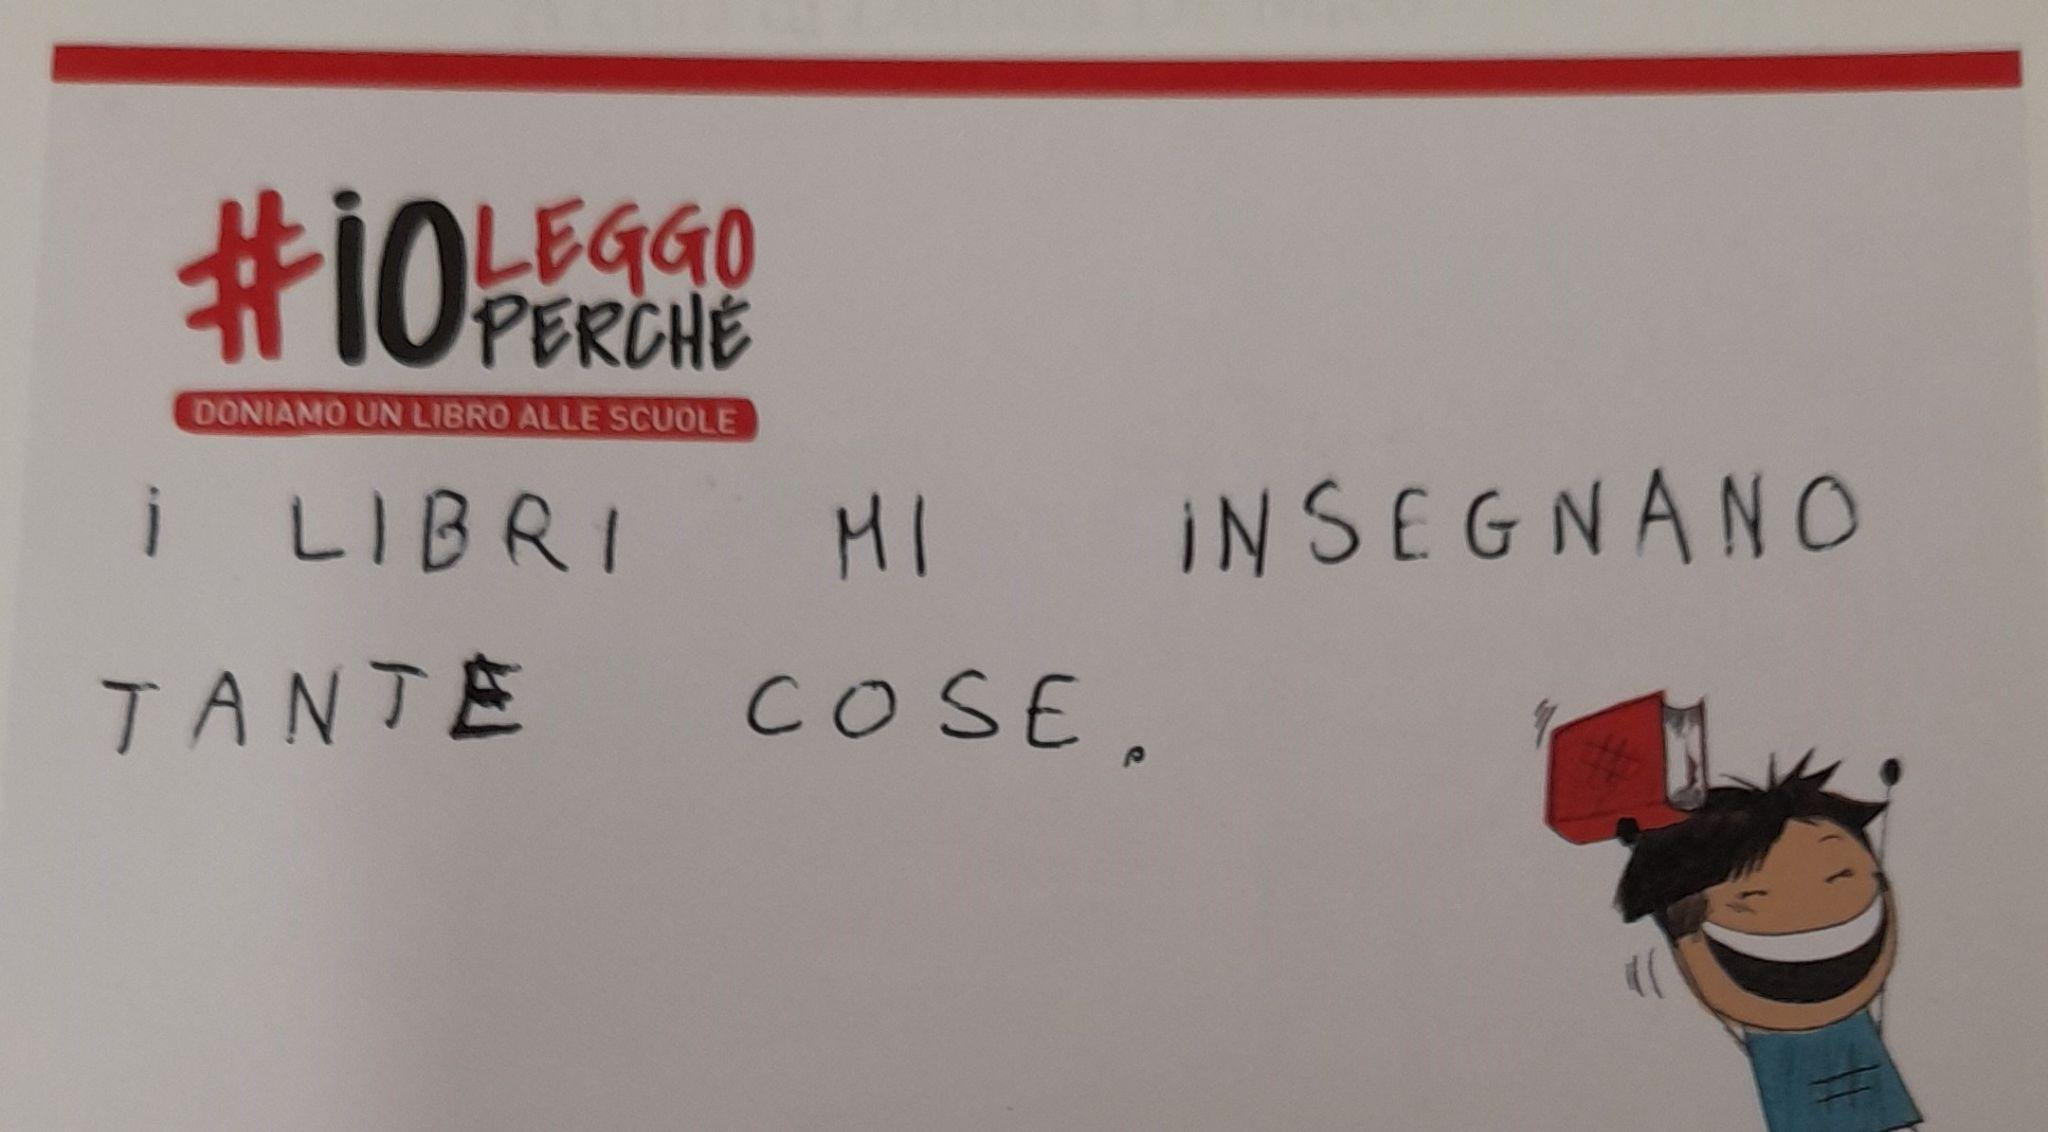 #iO LEGGO
PERCHÉ
DONIAMO UN LIBRO ALLE SCUOLE
i LIBRI MI iNSEGNANO
TANTE COSE.